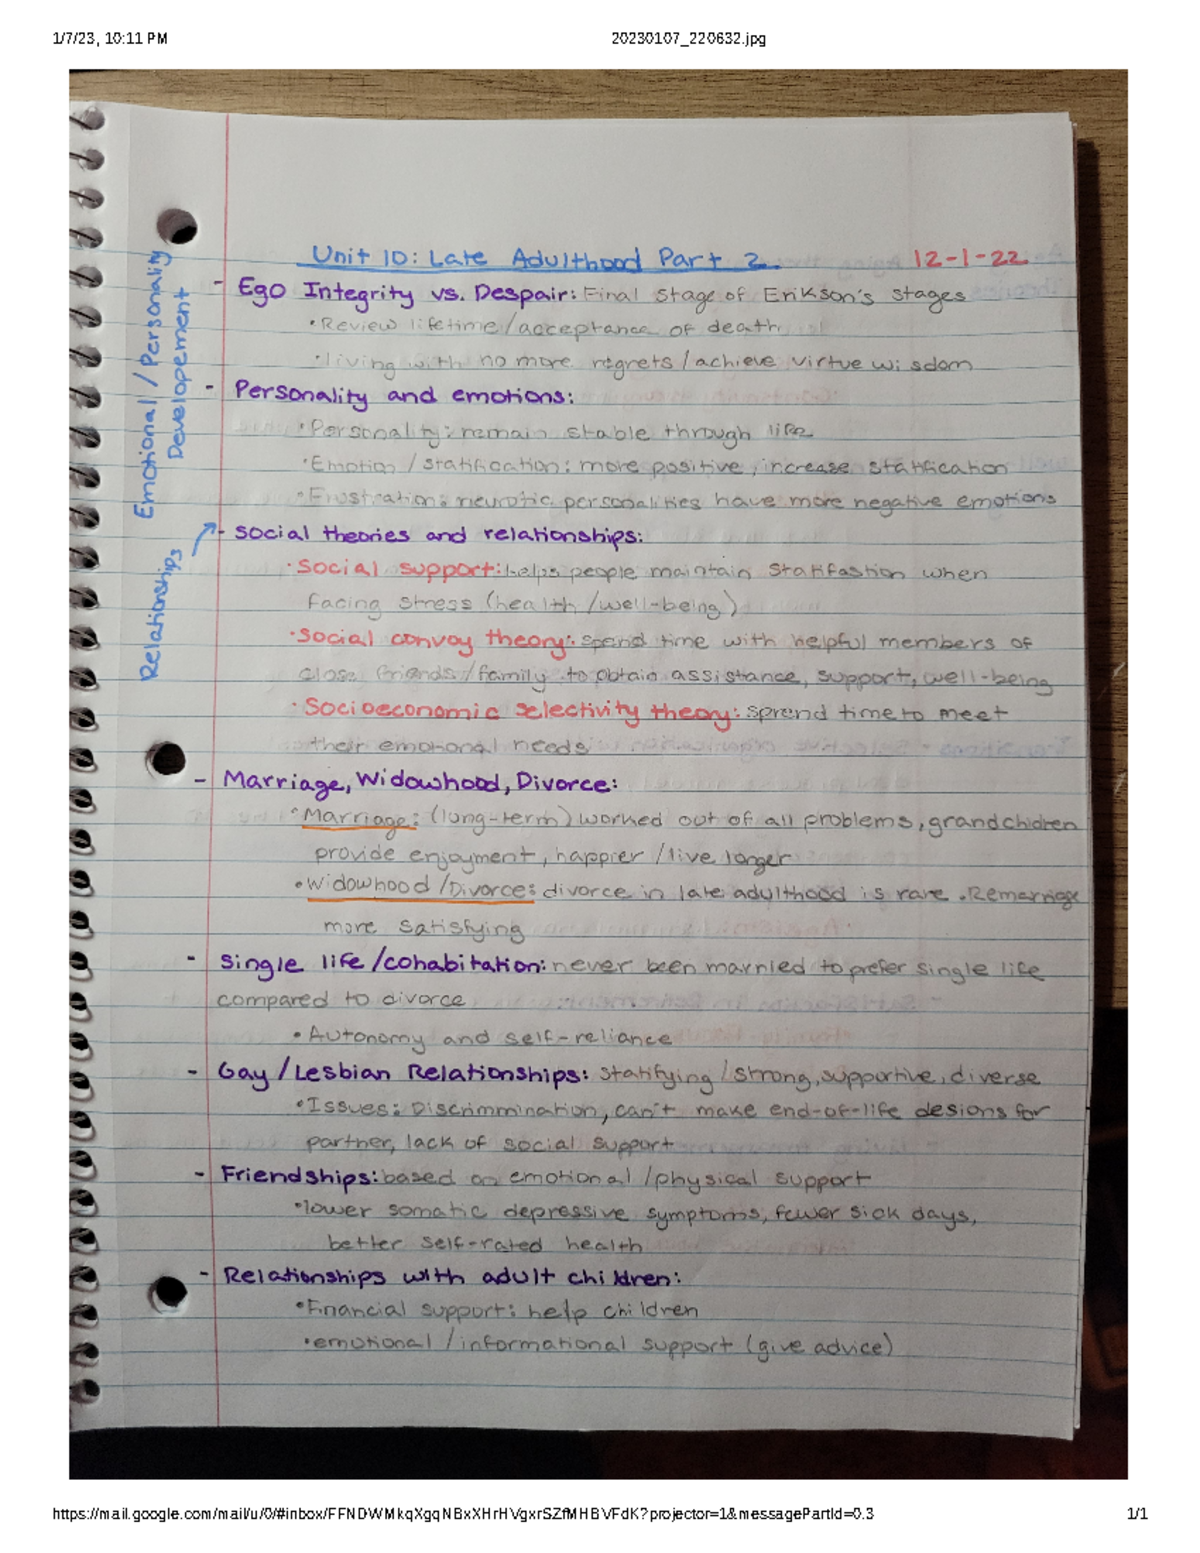 1/7/23, 10:11 PM 20230107_220632.jpg
Unit 10: Late Adulthood Part 2 12-1-22
Emotional / Personality
Developement
- Ego Integrity vs. Despair: Final stage of Erikson's stages
• Review lifetime/acceptance of death
• living with no more regrets/achieve virtue wisdom
- Personality and emotions:
• Personality: remain stable through life
• Emotion / statification: more positive, increase statification
• Frustration: neurotic personalities have more negative emotions
Relationships
- social theories and relationships:
• Social support: helps people maintain statifastion when
facing stress (health/well-being)
• Social convoy theory: spend time with helpful members of
close friends/family to obtain assistance, support, well-being
• Socioeconomic selectivity theory: sprend time to meet
their emotional needs
- Marriage, Widowhood, Divorce:
• Marriage: (long-term) worked out of all problems, grandchidren
provide enjoyment, happier /live longer
• Widowhood /Divorce: divorce in late adulthood is rare. Remarriage
more satisfying
- Single life /cohabitation: never been marrried to prefer single life
compared to divorce
• Autonomy and self-reliance
- Gay / Lesbian Relationships: statifying / strong, supportive, diverse
• Issues: Discrimmination, can't make end-of-life desions for
partner, lack of social support
- Friendships: based on emotional /physical support
• lower somatic depressive symptoms, fewer sick days,
better self-rated health
- Relationships with adult children:
• Financial support: help children
• emotional / informational support (give advice)
https://mail.google.com/mail/u/0/#inbox/FFNDWMkqXgqNBxXHrHVgxrSZfMHBVFdK?projector=1&messagePartId=0.3 1/1